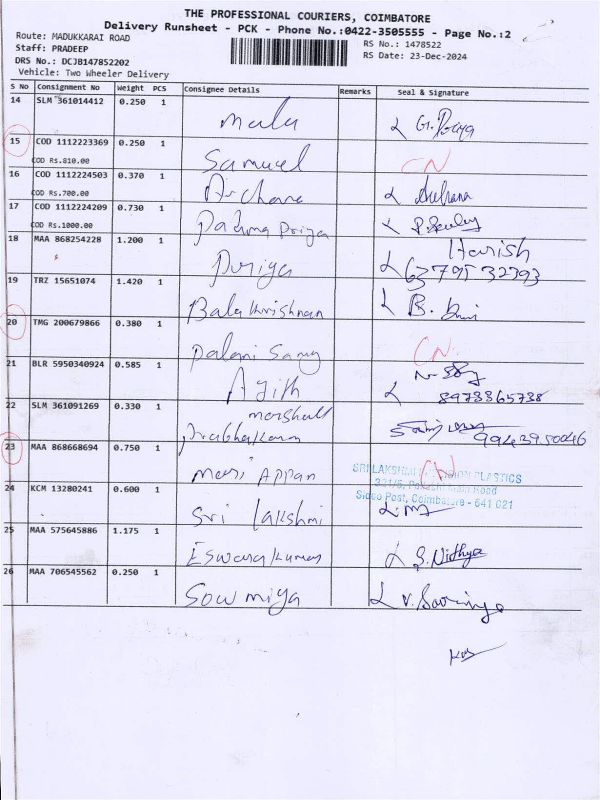 THE PROFESSIONAL COURIERS, COIMBATORE
Delivery Runsheet - PCK - Phone No.:0422-3505555 - Page No.:2
Route: MADUKKARAI ROAD
RS No.: 1478522
Staff: PRADEEP
RS Date: 23-Dec-2024
DRS No.: DCJB147852202
Vehicle: Two Wheeler Delivery
S No Consignment No Weight PCS Consignee Details Remarks Seal & Signature
14 SLM 361014412 0.250 1 Mala
15 COD 1112223369 0.250 1 Samuel CN
COD Rs.810.00
16 COD 1112224503 0.370 1 Archana
COD Rs.700.00
17 COD 1112224209 0.730 1 Padma Priya
COD Rs.1000.00
18 MAA 868254228 1.200 1 Priya Harish
19 TRZ 15651074 1.420 1 Balakrishnan B.
20 TMG 200679866 0.380 1 Palani Samy CN
21 BLR 5950340924 0.585 1 Ajith
8973365738
22 SLM 361091269 0.330 1 Marshall
Prabhakaran 9943950046
23 MAA 868668694 0.750 1 Appan CN
SRI LAKSHMI PLASTICS
Road
Sidco Post, Coimbatore - 641 021
24 KCM 13280241 0.600 1 Sri Lakshmi
25 MAA 575645886 1.175 1 Eswara Kumar S. Nithya
26 MAA 706545562 0.250 1 Sowmiya